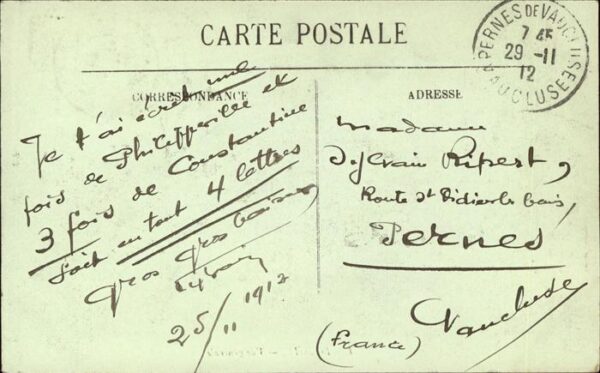 CARTE POSTALE
PERNES DE VAUCLUSE
7 45
29 -11
12
VAUCLUSE
CORRESPONDANCE
ADRESSE
Je t'ai écrit une
fois de Philippeville et
3 fois de Constantine
soit en tout 4 lettres
gros gros baisers
Sylvain
25/11 1912
Madame
Sylvain Ripert,
Route St Didier les bains,
Pernes
Vaucluse
(France)